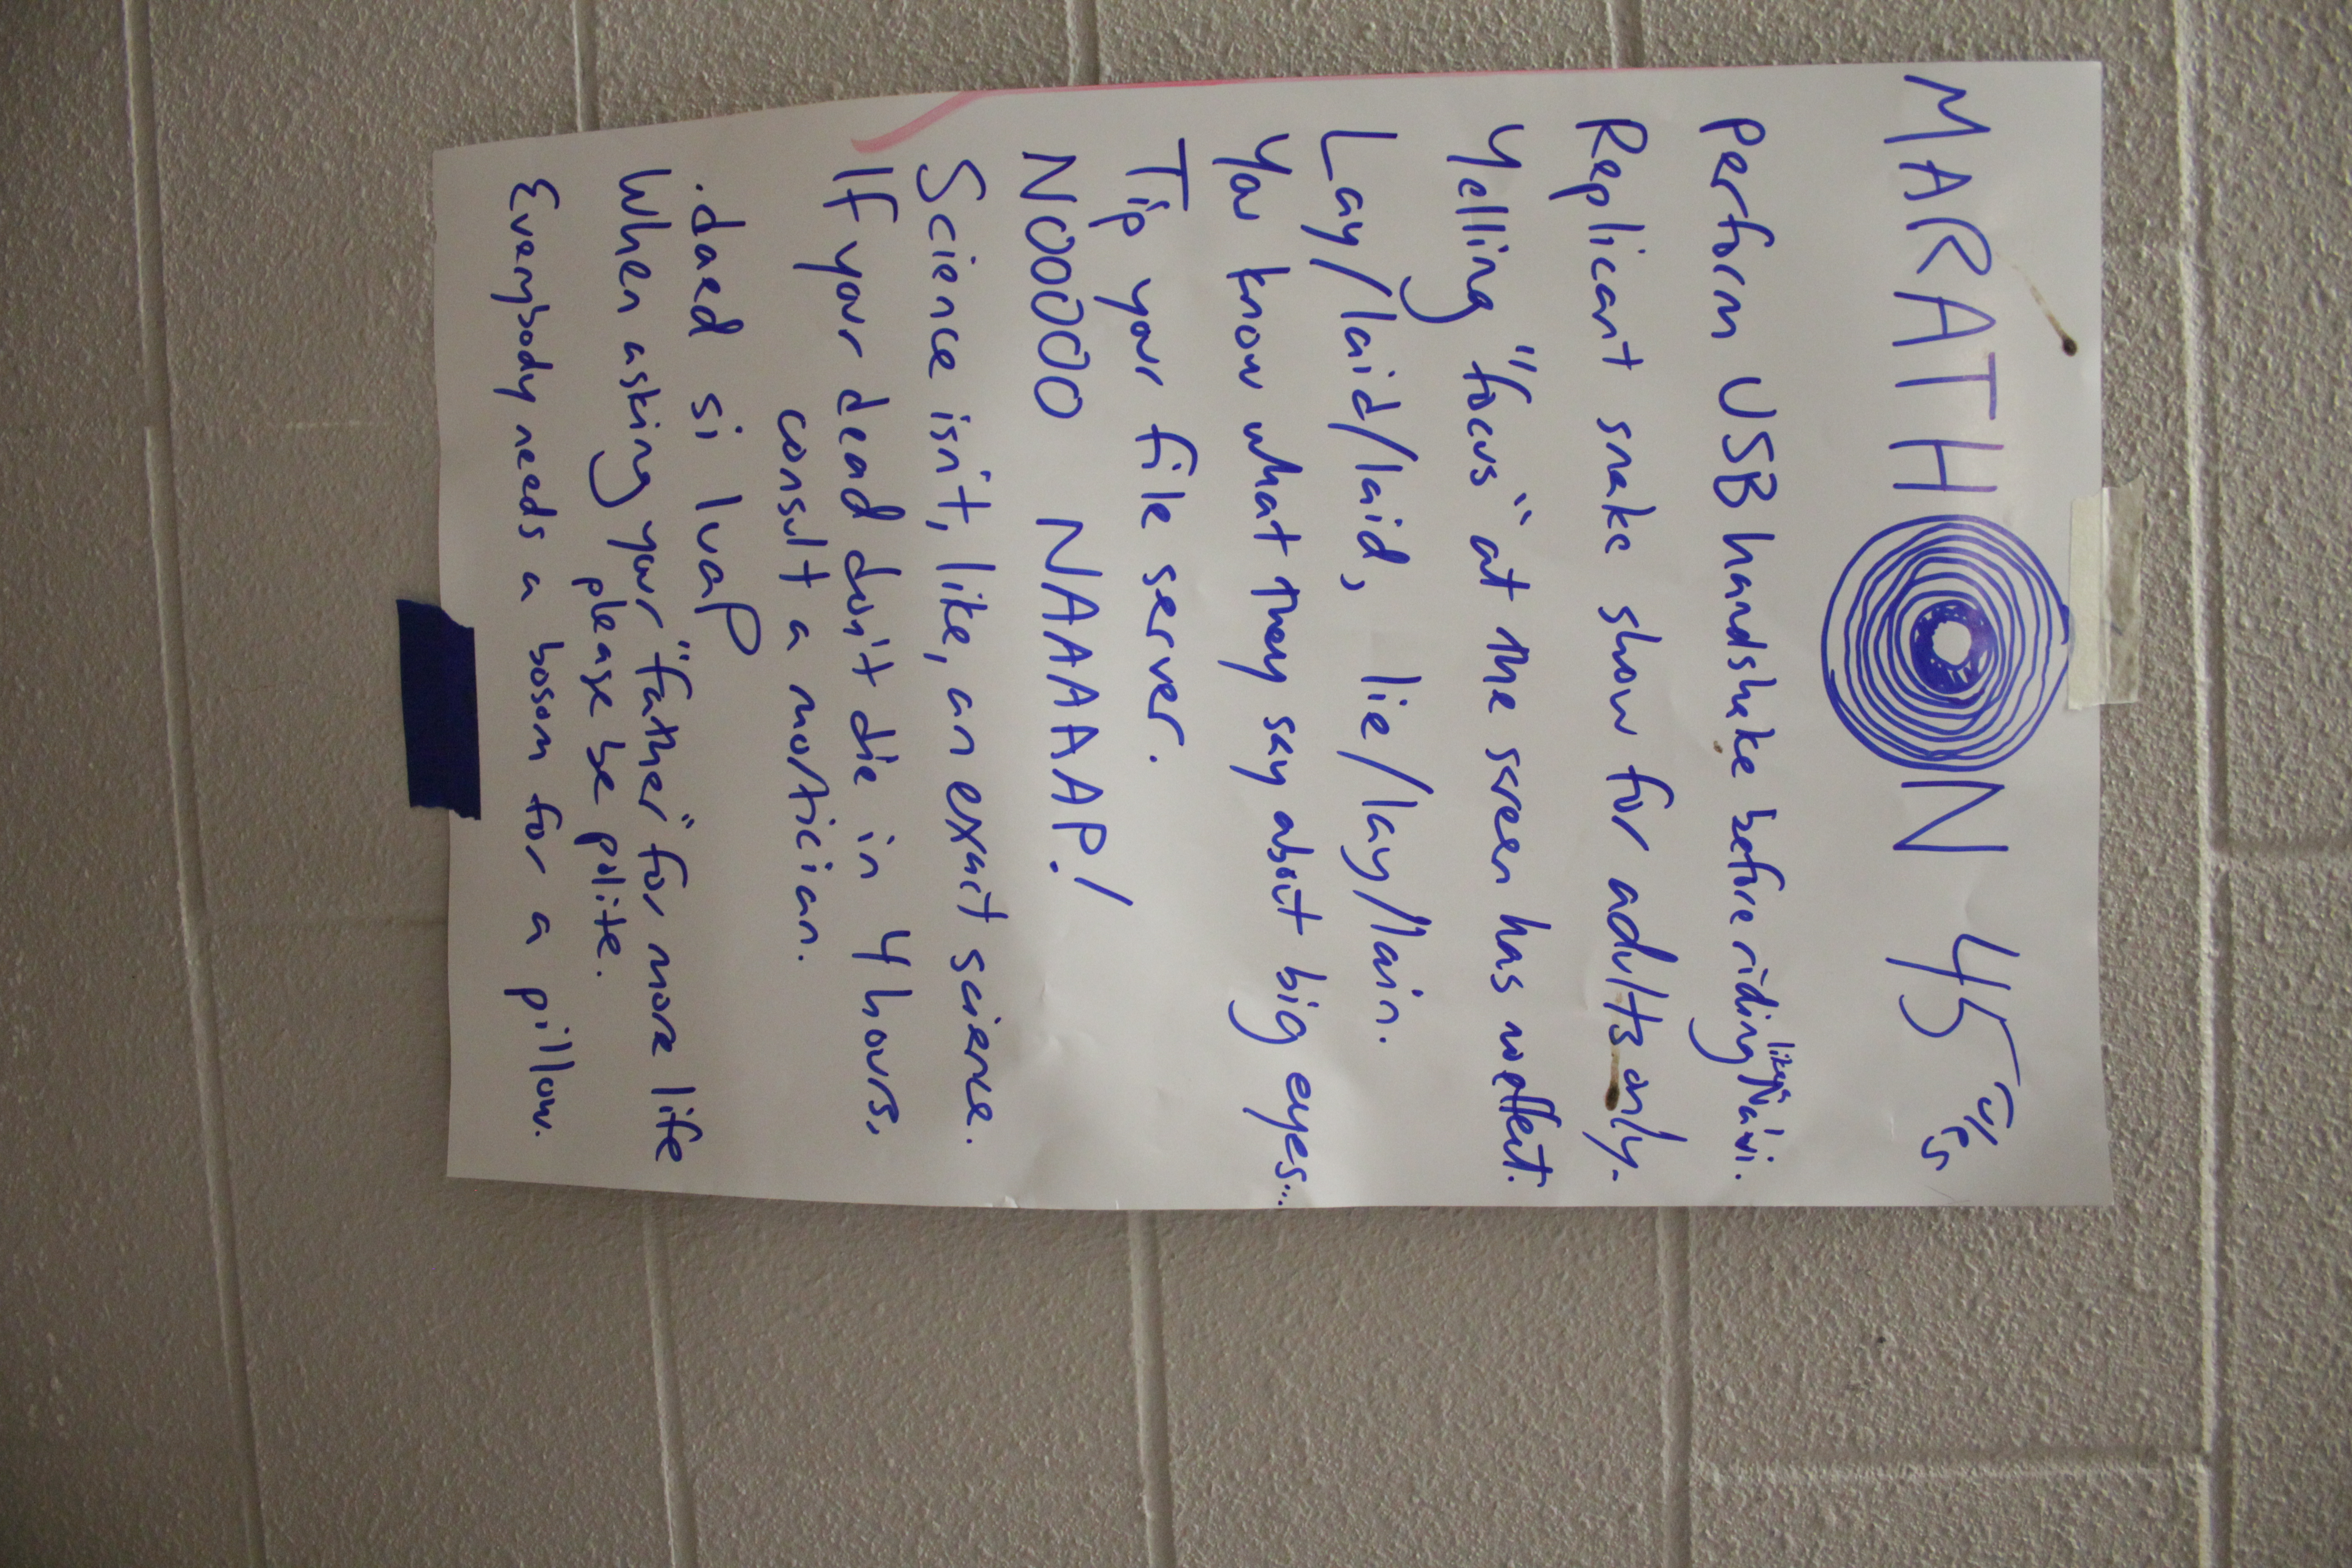 MARATHON 45 rules
Perform USB handshake before riding like Na'vi.
Replicant snake show for adults only.
Yelling "focus" at the screen has no effect.
Lay/laid/laid, lie/lay/lain.
You know what they say about big eyes...
Tip your file server.
NOOOOOO NAAAAAAP!
Science isn't, like, an exact science.
If your dead don't die in 4 hours,
consult a mortician.
.daed si luaP
When asking your "father" for more life
please be polite.
Everybody needs a bosom for a pillow.